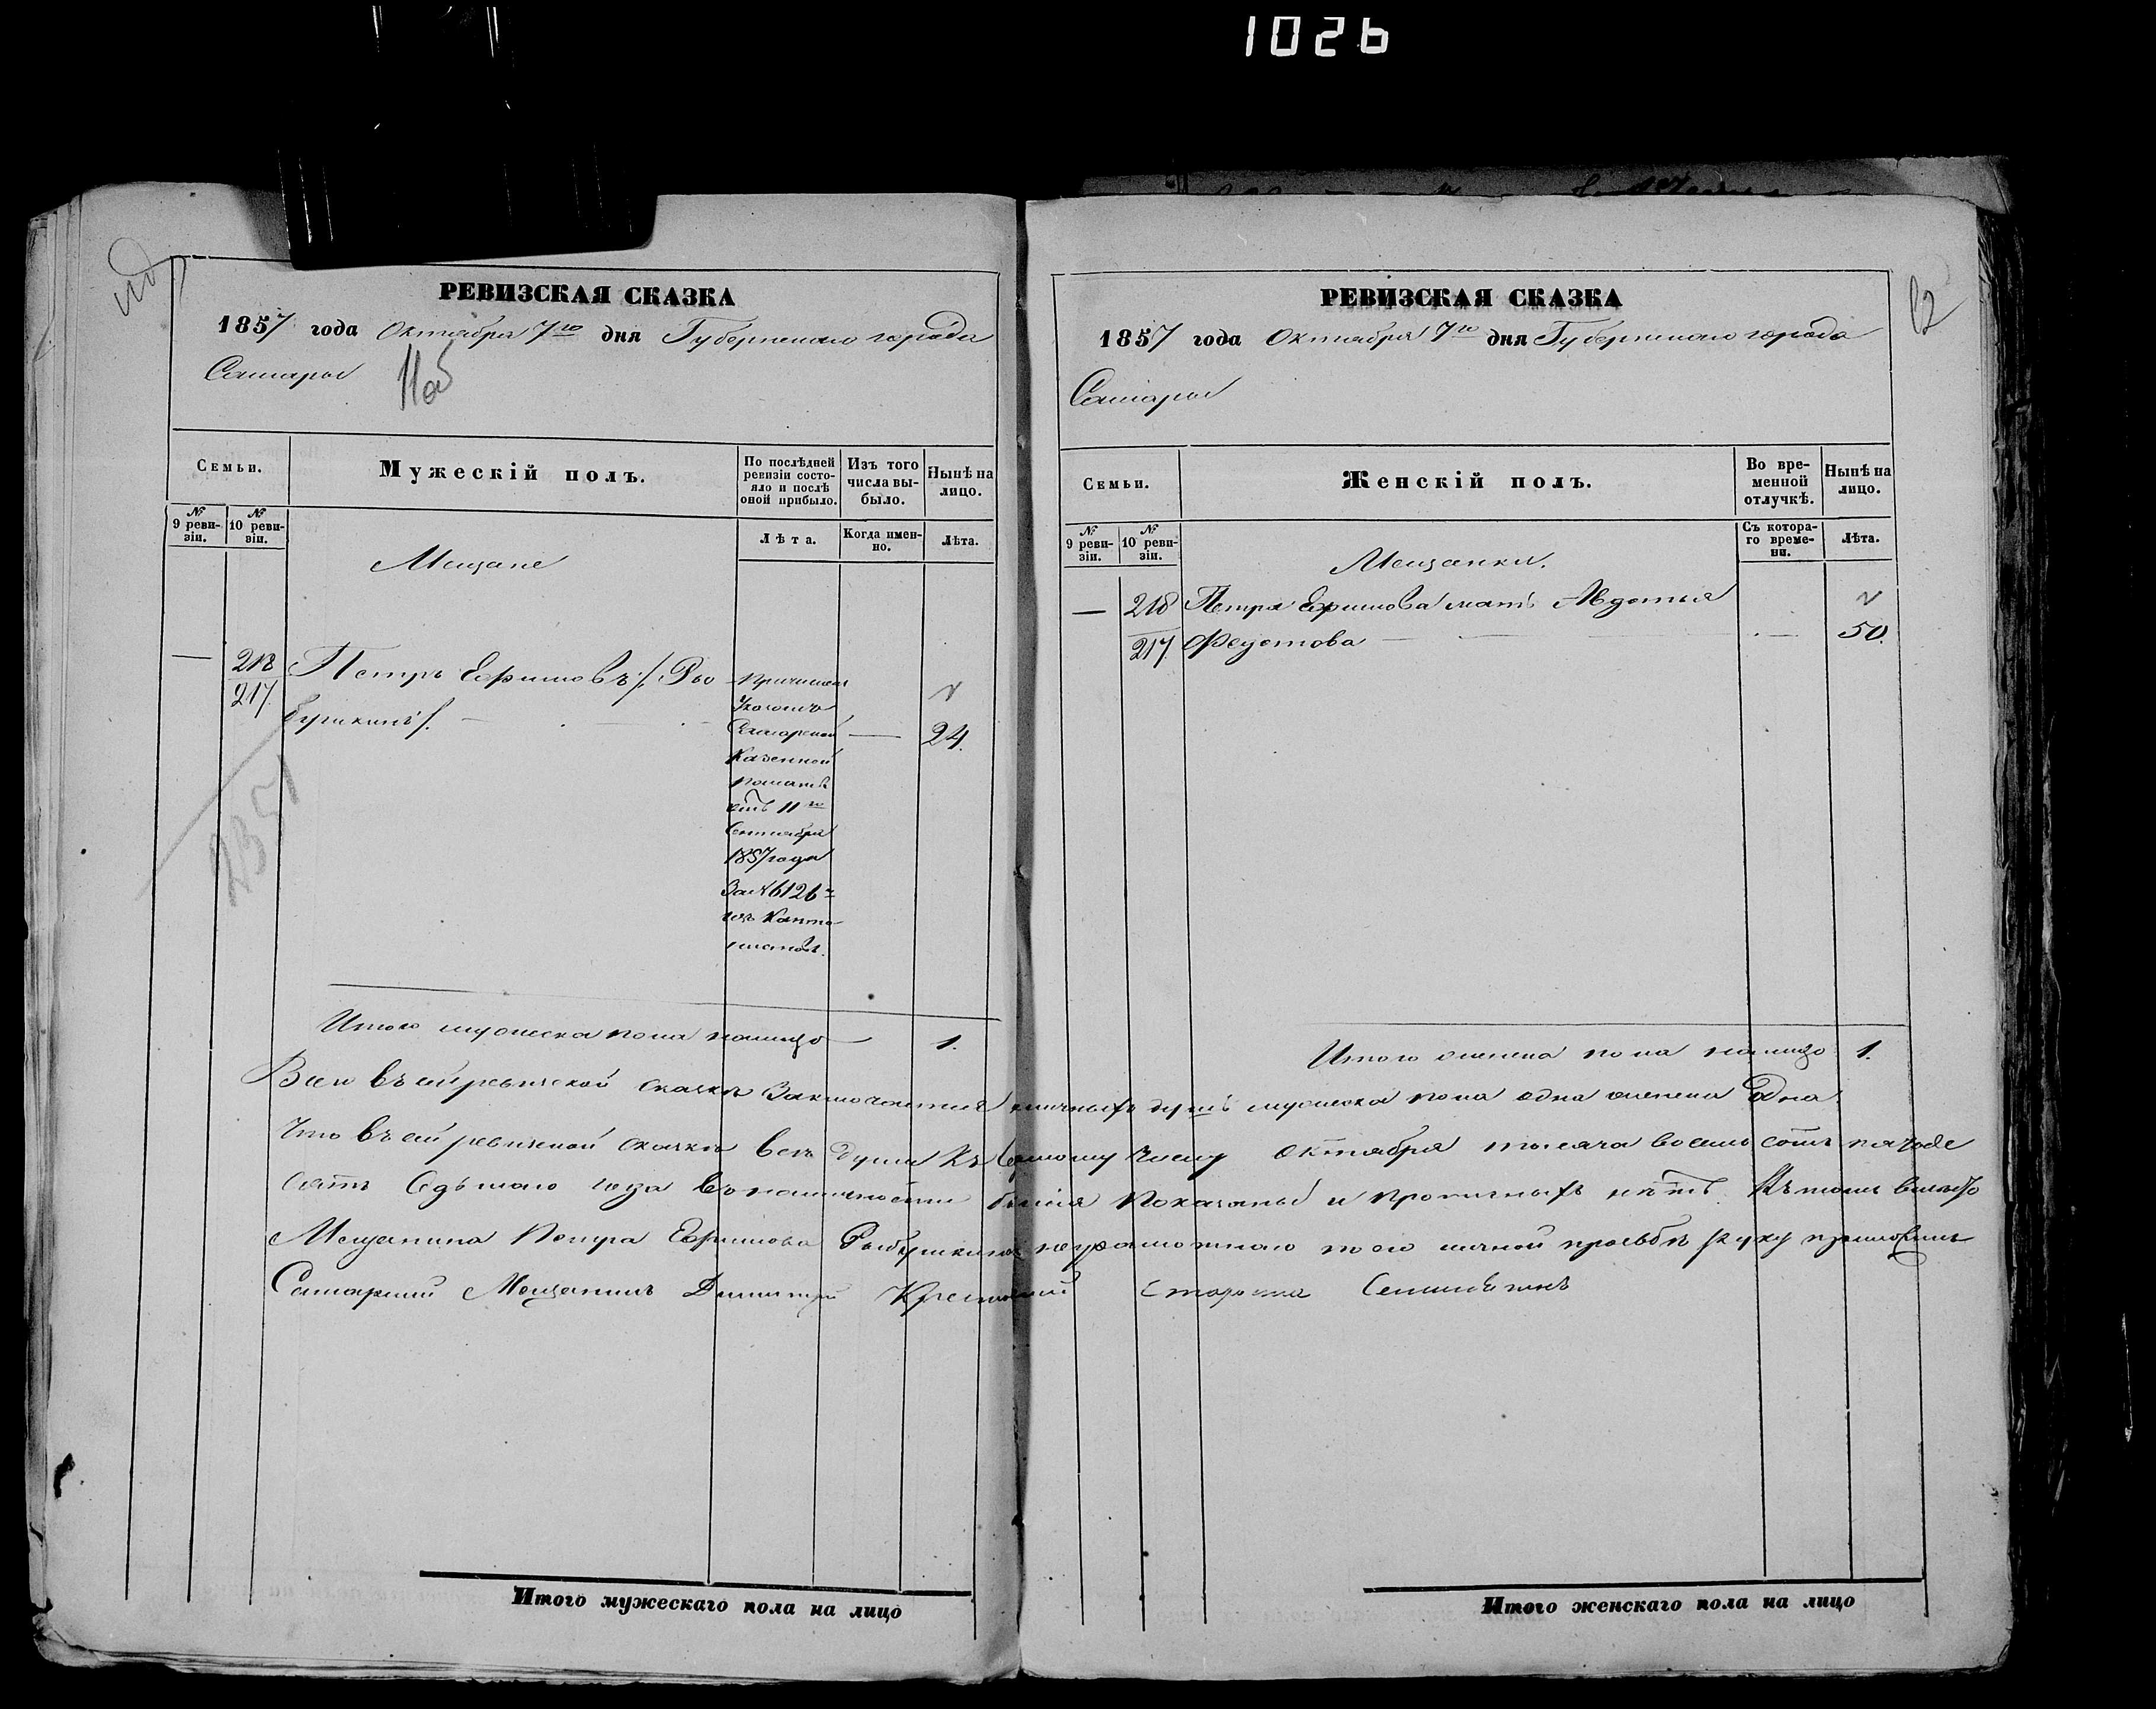 1026
РЕВИЗСКАЯ СКАЗКА
1857 года Октября 7го дня Губернского города
Самары
11об
Семьи.
Мужескій полъ.
По послѣдней ревизіи состо-
яло и послѣ
оной прибыло.
Изъ того
числа вы-
было.
Нынѣ на
лицо.
№
9 реви-
зіи.
№
10 реви-
зіи.
Лѣта.
Когда имен-
но.
Лѣта.
Мещане
— 218 Петръ Ефимовъ /: Ры
217 бушкинъ /. — 24.
Причислен
Указомъ
Самарской
Казенной
Палаты
отъ 11го
Сентября
1857 года
За №6126
изъ Канто
нистовъ.
2351
Итого мужеска пола налицо — 1.
РЕВИЗСКАЯ СКАЗКА
12
1857 года Октября 7го дня Губернского города
Самары
Семьи.
Женскій полъ.
Во вре-
менной
отлучкѣ.
Нынѣ на
лицо.
№
9 реви-
зіи.
№
10 реви-
зіи.
Съ котора-
го време-
ни.
Лѣта.
Мещанки.
— 218 Петра Ефимова мать Авдотья
217 Федотова — — 50.
Итого женска пола налицо 1.
Всего въ сей ревизской сказкѣ заключается личныхъ душъ мужеска пола одна женска одна.
Что въ сей ревизской сказкѣ всѣ души къ седьмому числу Октября тысяча восемь сотъ пятьде
сятъ седьмаго года въ наличности были показаны и прописныхъ нѣтъ. Къ тому вмѣсто
Мещанина Петра Ефимова Рыбушкина неграмотнаго по его личной прозьбѣ руку приложилъ
Самарский Мещанинъ Димитрий Староста
Итого мужескаго пола на лицо
Итого женскаго пола на лицо